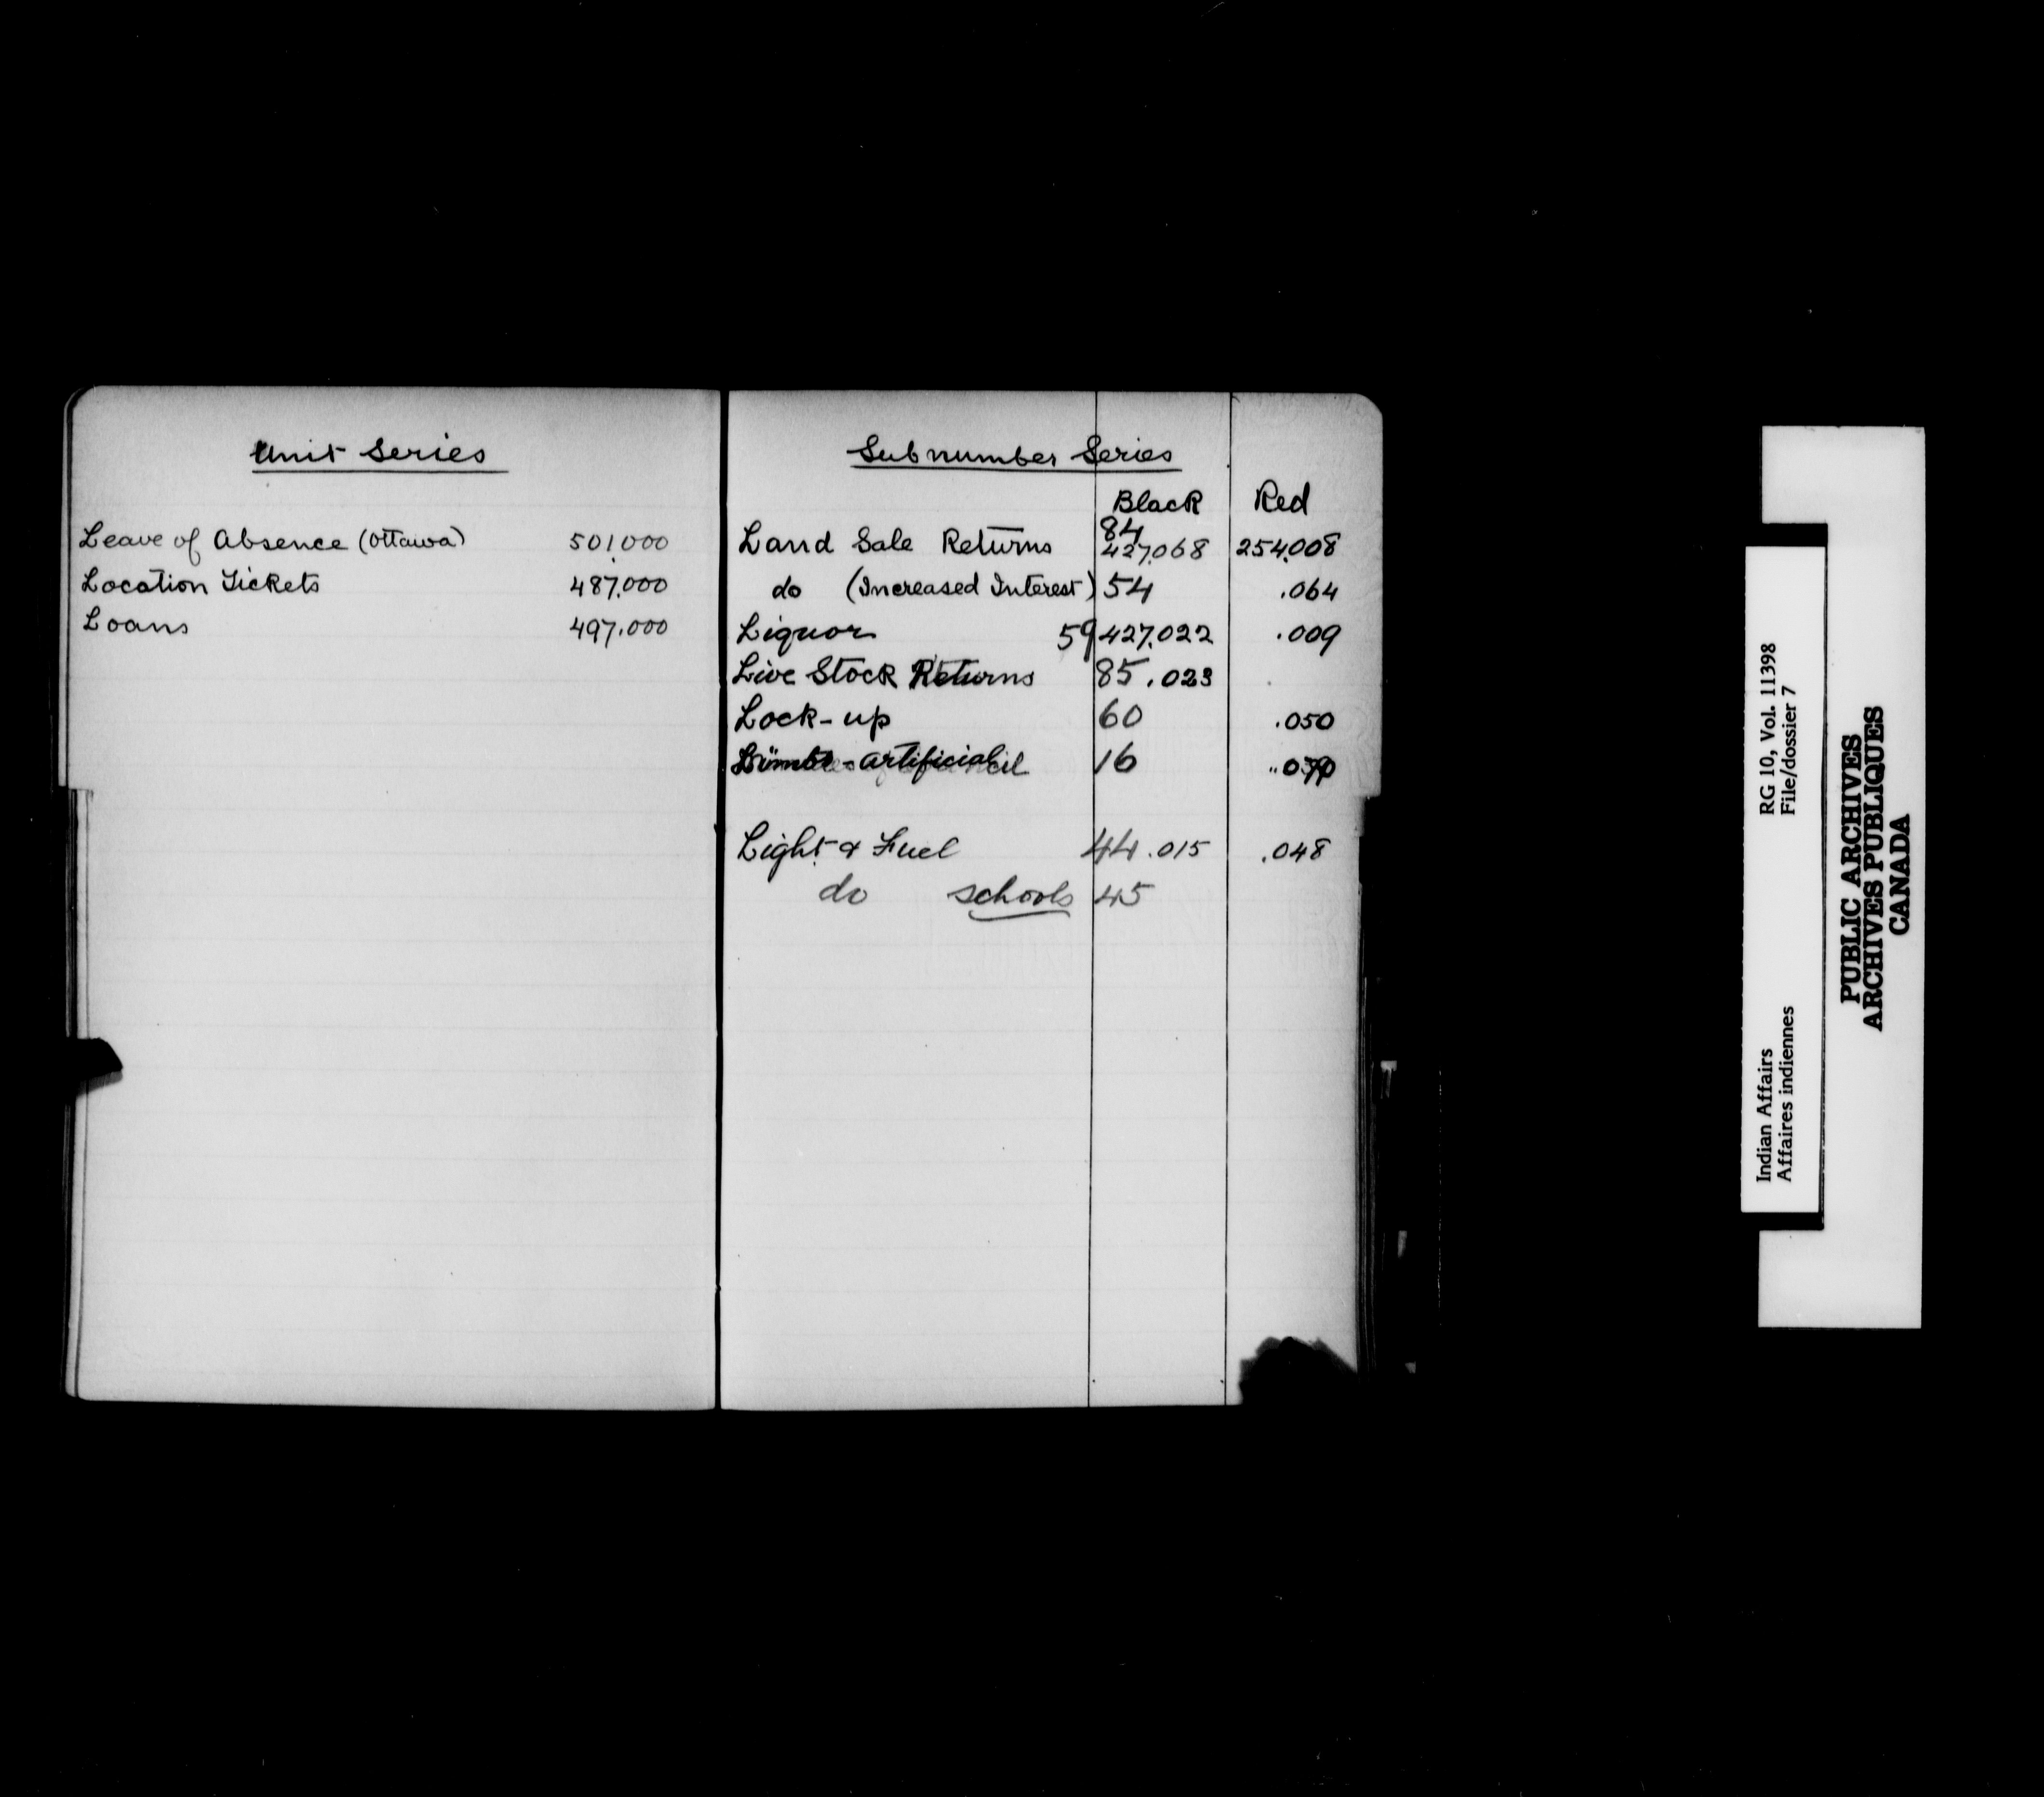 Unit Series
Leave of Absence (Ottawa) 501.000
Location Tickets 487.000
Loans 497.000
Subnumber Series
Black Red
84
Land Sale Returns 427.068 254.008
do (Increased Interest) 54 .064
Liquor 59 427.022 .009
Live Stock Returns 85.023
Lock-up 60 .050
artificial 16
Light & Fuel 44.015 .048
do schools 45
Indian Affairs RG 10, Vol. 11398
Affaires indiennes File/dossier 7
PUBLIC ARCHIVES
ARCHIVES PUBLIQUES
CANADA